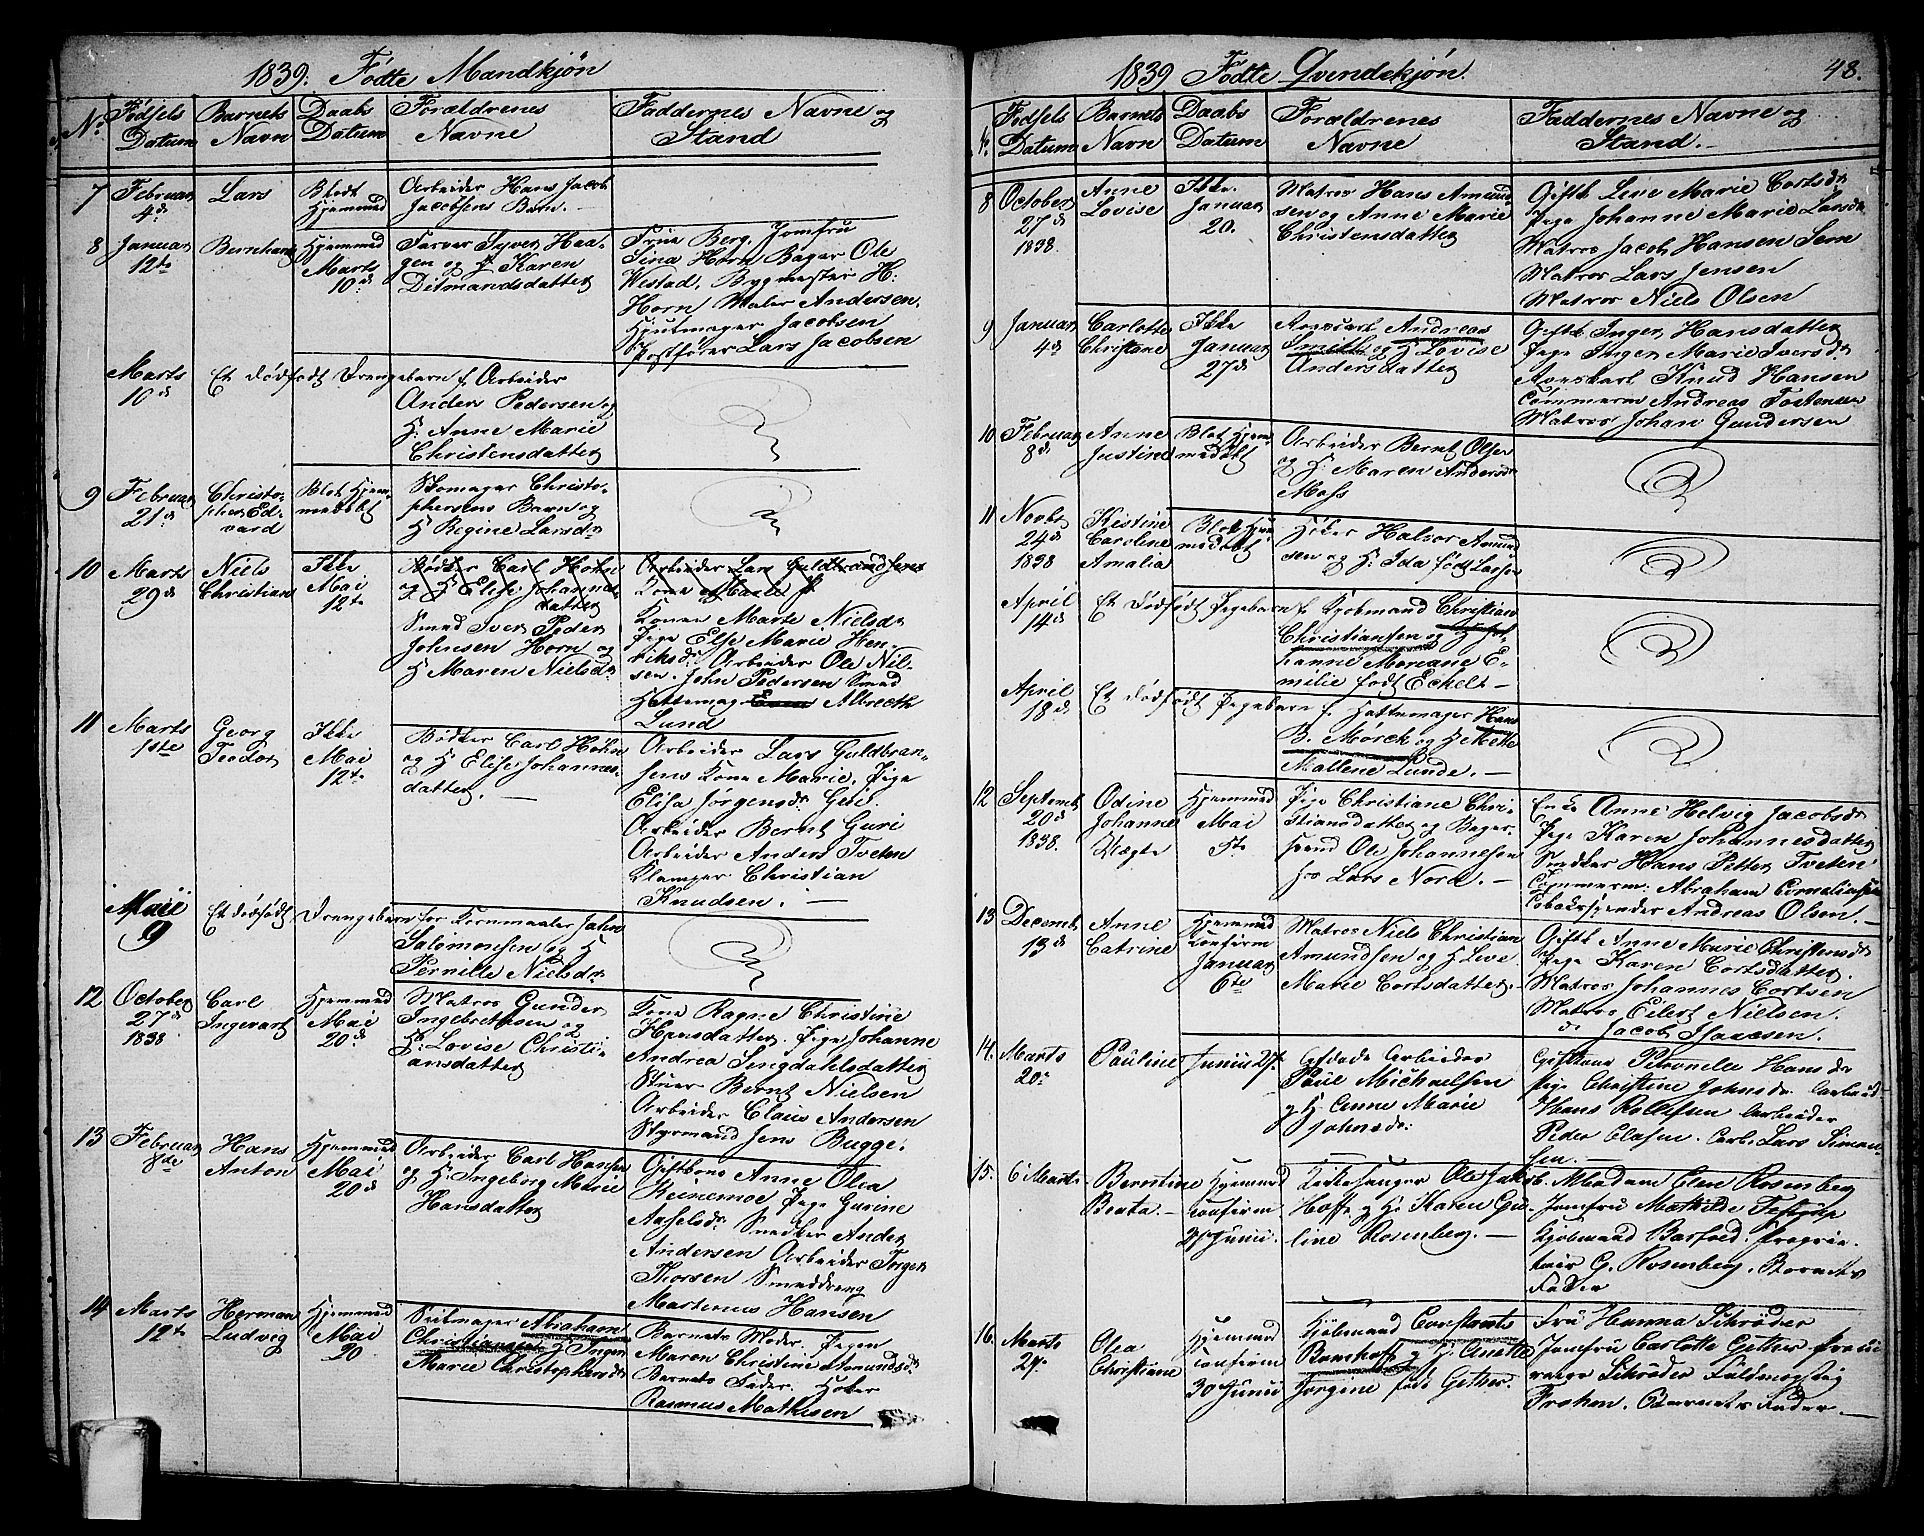 1839. Fødte Mandkjøn
No Fødsels Datum Barnets Navn Daabs Datum Forældrenes Navne Faddernes Navne og Stand
7 Februar 4d Lars Blodt Hjemmed
Arbeider Hans Jacob
Jacobsens Barn.
8 Januar 12te Bernhard Hjemmed Marts 10d
Farver Syver Haa-
gen og H Karen
Ditmandsdatter
Frue Berg, Jomfru
Sina Horn Bager Ole
Westad, Bygmester H:
Horn Maler Andersen,
Hjulmager Jacobsen
Postfører Lars Jacobsen
Marts 10d Et dødfødt Drengebarn f. Arbeider
Anders Pedersen og
H. Anne Marie
Christensdatter
9 Februar 21d Christo-
pher Ed-
vard
Blot Hjem-
medøbt
Skomager Christo-
phersens Barn og
H Regine Larsdr
10 Marts 29d Niels
Christian
Ikke
Mai
12te
Bødker Carl Høhn
og H Elise Johannes-
datter
Smed Iver Peder
Johnsen Horn og
H Maren Nielsdr
Arbeider Lars Guldbrandsens
Kone Marie P
Konen Marte Nielsdr
Pige Else Marie Hen-
riksdr. Arbeider Ole Nil-
sen. John Pedersen Smed
Hattemag Albrecth
Lund
11 Marts 1ste Georg
Teodor
Ikke
Mai
12te
Bødker Carl Høhn
og H Elise Johannes-
datter.
Arbeider Lars Guldbran-
sens Kone Marie, Pige
Elisa Jørgensdr Guri.
Arbeider Bernt Guri
Arbeider Anders Tveten
Klamper Christian
Knudsen.
Maii 9 Et dødfødt Drengebarn for Kornmaaler John
Salomonsen og H
Pernille Nielsdr
12 October 27d 1838 Carl
Ingevart
Hjemmed
Mai
20d
Matros Gunder
Ingebrethsen og
H: Lovise Christi-
ansdatter
Kone Ragne Christine
Hansdatter. Pige Johanne
Andrea Singdahlsdatter
Stuer Bernt Nielsen
Arbeider Claus Andersen
Styrmand Jens Bugge.
13 Februar 8de Hans
Anton
Hjemmed
Mai
20d
Arbeider Carl Hansen
og H. Ingeborg Marie
Hansdatter
Giftkone Anne Olea
Reinemoe Pige Gurine
Axelsdr Snedker Ander
Andersen Arbeider Torger
Thorsen Smeddreng
Marternus Hansen
14 Marts 12te Herman
Ludvig
Hjemmed
Mai
20
Seilmager Abraham
Christiansen H Inger
Marie Christophersdr
Barnets Moder. Pigen
Maren Christine Amundsdr
Barnets Fader. Høker
Rasmus Mathisen
1839 Fødte Qvindekjøn. 48.
No Fødsels Datum Barnets Navn Daabs Datum Forældrenes Navne Faddernes Navne og Stand.
8 October 27d 1838. Anne
Lovise
Ikke.
Januar
20.
Matros Hans Amund
sen og Anne Marie
Christensdatter
Gift Live Marie Cortsdr
Pige Johanne Marie Larsdr
Matros Jacob Hansen Sem
Matros Lars Jensen
Matros Niels Olsen
9 Januar 4d Carlotte
Christane
Ikke
Januar
27d
Andreas
Smith og H Lovise
Andersdatter
Gift Inger Hansdatter
Pige Inger Marie Iversdr
Knud Hansen
Tømmerm Andreas Tostensen
Matros Johan Gundersen
10 Februar 8d Anne
Justine
Blot Hjem-
medøbt
Arbeider Bernt Olsen
og H. Maren Andersdr
Moss
11 Novbr 24d 1838 Kistine
Caroline
Amalia
Blot Hjem
medøbt
Høker Halvor Amund
sen og H. Ida født Lassen
April 14d Et dødfødt Pigebarn f. Kjøbmand Christian
Christiansen og H Jo-
hanne Moriane E-
milie født Eckelt -
April 18d Et dødfødt Pigebarn f. Hattemager Hans
B. Mørck og H Mette
Mallene Lunde. -
12 Septembr 20d 1838. Odine
Johanne
Uægte
Hjemmed
Mai
5te
Pige Christiane Chri-
stiansdatter og Bager-
svend Ole Johannesen
hos Lars Nord. -
Enke Anne Helvig Jacobsdr
Pige Karen Johannesdatter
Snedker Hans Petter Tveten
Tømmerm: Abraham Corneliussen
Tobakspinder Andreas Olsen. -
13 Decembr 13d Anne
Catrine
Hjemmed
Confirm
Januar
6te
Matros Niels Christian
Amundsen og H Live
Marie Cortsdatter.
Gift Anne Marie Christensdr
Pige Karen Cortsdatter.
Matros Johannes Cortsen
Matros Eilert Nielsen.
do Jacob Isaacsen.
14. Marts 20. Pauline Junii 27.
Afdøde Arbeider
Poul Michaelsen
og H. Anne Marie
Johnsdr.
Giftkone Petronelle Hansdr
Pige Christine Johnsdr Arbeid
Hans Rollefsen Arbeider
Peder Olasen. Arb. Lars Simon-
sen. -
15. 6 Marts. Berntine
Berta -
Hjemmed
Confirm
27 Junii.
Kirkesanger Ole Jakob
Hoff og H. Karen Gu-
line Rosenberg. -
Madam Elen Rosenberg
Jomfru Mathilde Festrup
Kjøbmand Barfod. Proprie-
tair G. Rosenberg. Barnets
Fader
16. Marts 29. Olea
Christiane
Hjemmed
Confirm
30 Junii
Kjøbmand Constants
Bomhoff og H. Anette
Jorgine født Gether.
Fru Hanna Schrøder
Jomfru Carlotte Gether
Schrøder Fuldmægtig
Frohen. Barnets Fader. -